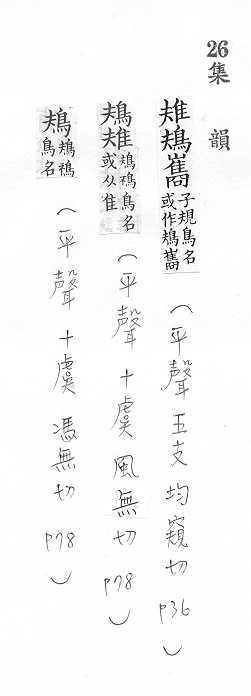 26集 韻
鳺巂 子規鳥名或作鳺巂 (平聲 五支 均窺切 P36)
鳺 鳺鴀鳥名或从隹 (平聲 十虞 風無切 P78)
鳺 鳺鴀鳥名 (平聲 十虞 馮無切 P78)